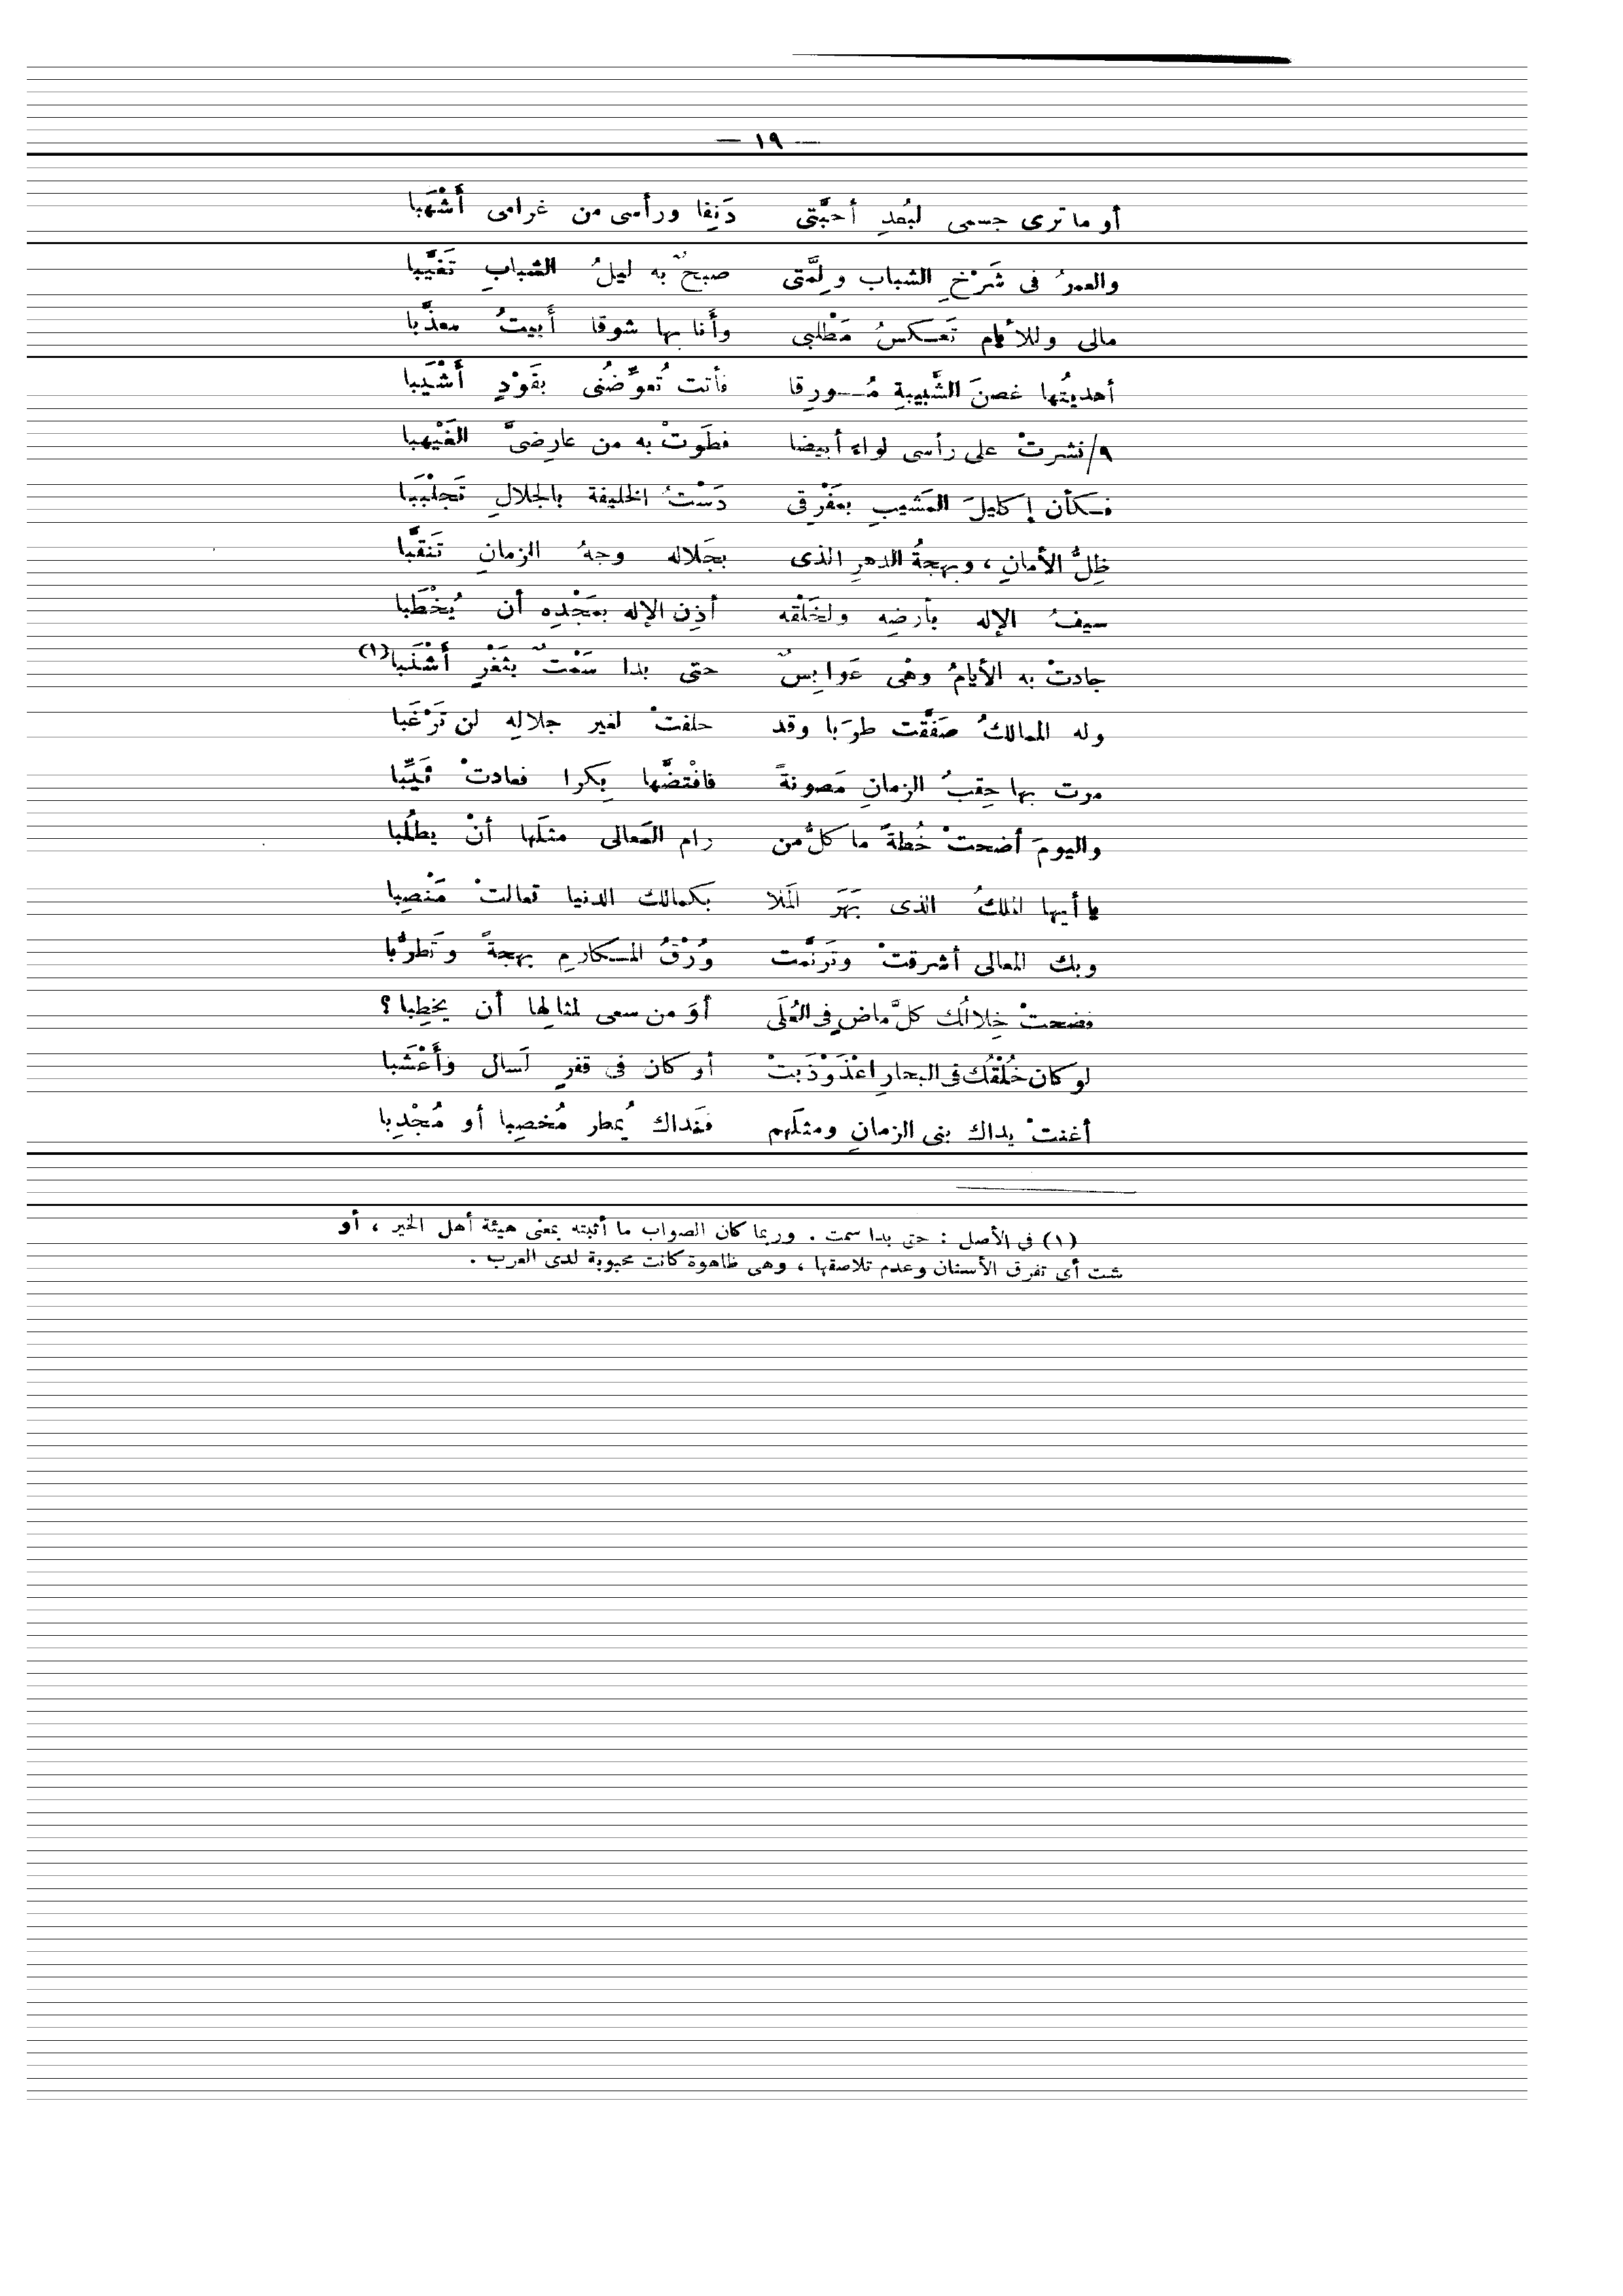 — ١٩ —
أو ما ترى جسمى لبُعدِ أحبَّتى دَنِفا ورأسى من غرامى أَشْهَبا
والعمرُ فى شَرْخِ الشباب ولِمَّتى صبحٌ به ليلُ الشبابِ تَغَيَّبا
مالى وللأيام تَعـكسُ مَطْلبى وأَنا بها شوقا أَبيتُ معذَّبا
أهديتُها غصنَ الشَّبيبةِ مُـورِقا فأتت تُعوِّضُنى بفَوْدٍ أَشْيَبا
٩/نشرتْ على رأسى لواءً أبيضا فطَوتْ به من عارضىَّ الغَيْهبا
فـكأن إكليلَ المَشيبِ بمَفْرِقى دَسْتُ الخليفة بالجلالِ تَجَلْبَبَا
ظِلُّ الأمانِ ، وبهجةُ الدهرِ الذى بجَلاله وجهُ الزمانِ تَنقَّبا
سيفُ الإله بأرضِه ولخَلْقه أذِن الإله بمَجْدِه أن يُخْطَبا
جادتْ به الأيامُ وهْى عَوابِسٌ حتى بدا سَمْتٌ بثَغْرٍ أَشْنَبا(١)
وله الممالكُ صَفَّقت طرَبا وقد حلفتْ لغير جلالِه لن تَرْغَبا
مرت بها حِقبُ الزمانِ مَصونةً فافْتضَّها بِكرا فعادتْ ثَيِّبا
واليومَ أضحتْ خُطةً ما كلُّ من رام المَعالى مثلَها أنْ يطلُبا
يا أيها الملكُ الذى بَهَرَ المَلا بكمالك الدنيا تعالتْ مَنْصِبا
وبك المعالى أشرقتْ وتَرنَّمت وُرْقُ المـكارمِ بهجةً وتَطرُّبا
فضحتْ خِلالُك كلَّ ماضٍ فى العُلَى أوَ من سعى لمثالِها أن يخطِبا؟
لو كان خُلْقُك فى البحارِ اعْذَوْذَبتْ أو كان فى قفرٍ لَسال وأَعْشَبا
أغنتْ يداك بنى الزمانِ ومثلَهم فغَداك يُمطر مُخصِبا أو مُجْدِبا
(١) فى الأصل : حتى بدا سمت . وربما كان الصواب ما أثبته بمعنى هيئة أهل الخير ، أو
شت أى تفرق الأسنان وعدم تلاصقها ، وهى ظاهرة كانت محبوبة لدى العرب .